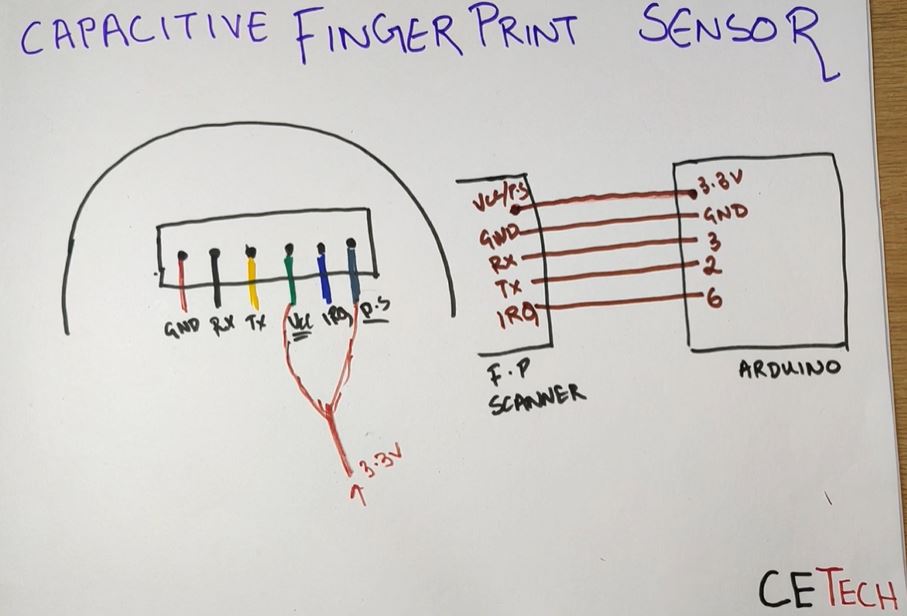 CAPACITIVE FINGER PRINT SENSOR
GND RX TX VCC IRQ P.S
3.3V
VCC/P.S
GND
RX
TX
IRQ
F.P
SCANNER
3.3V
GND
3
2
6
ARDUINO
CETECH